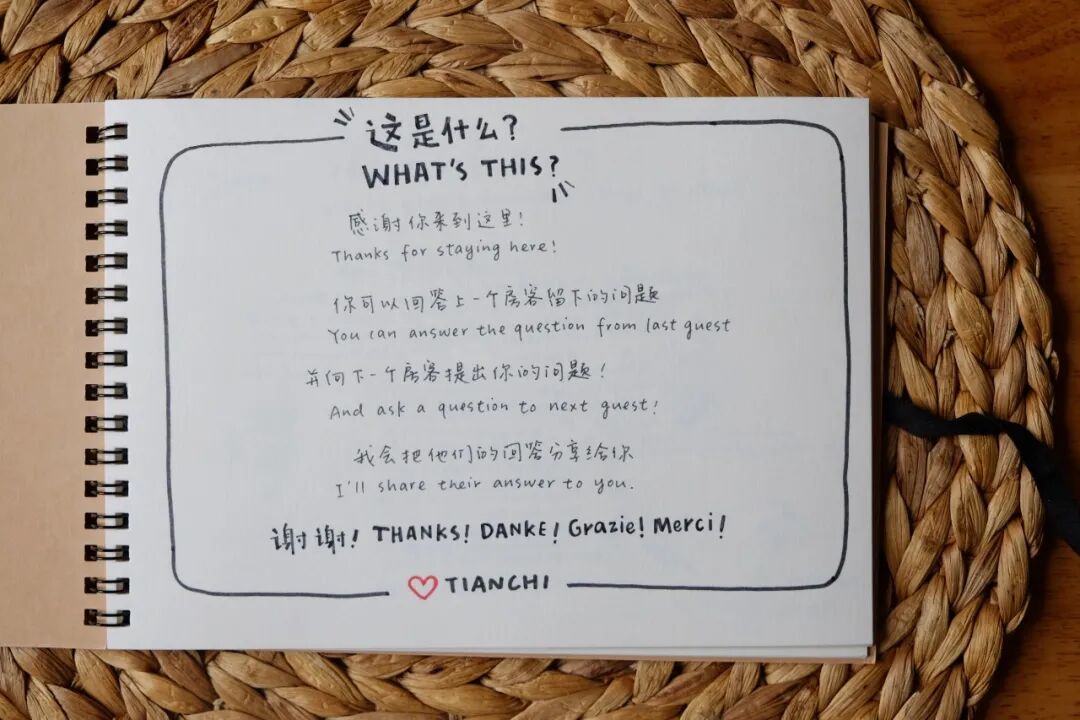 这是什么?
WHAT'S THIS?
感谢你来到这里!
Thanks for staying here!
你可以回答上一个房客留下的问题
You can answer the question from last guest
并向下一个房客提出你的问题!
And ask a question to next guest!
我会把他们的回答分享给你
I'll share their answer to you.
谢谢! THANKS! DANKE! Grazie! Merci!
TIANCHI